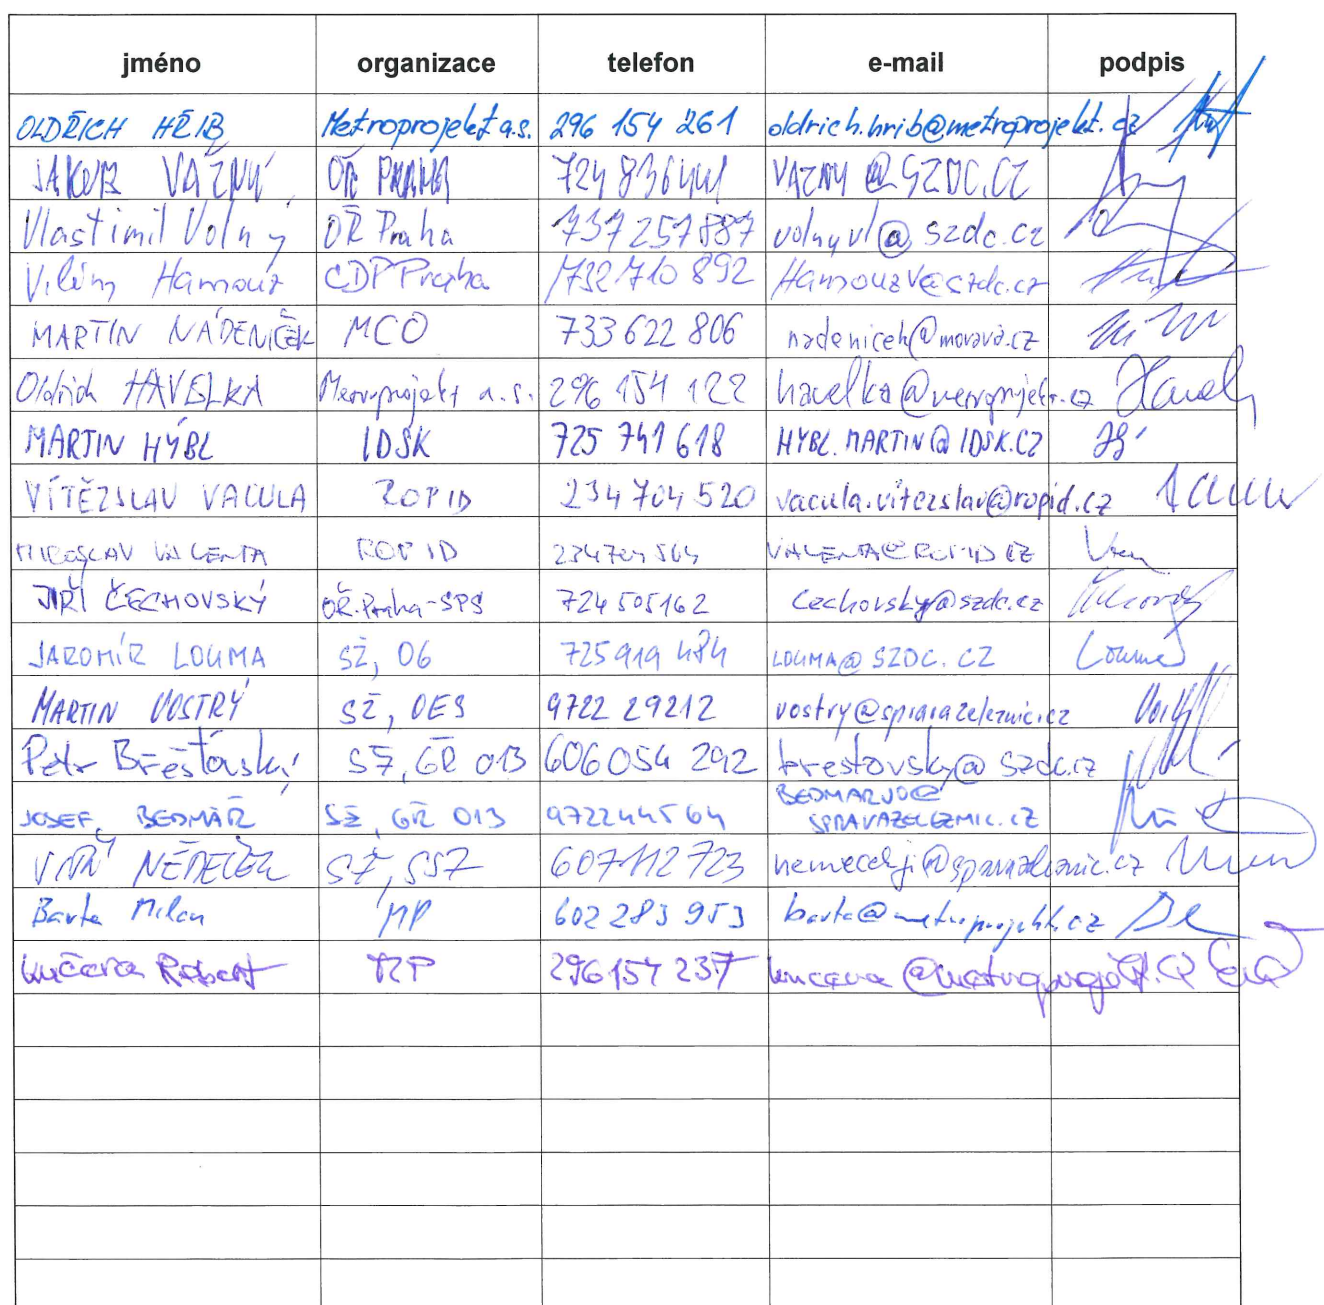 jméno organizace telefon e-mail podpis
OLDŘICH HŘIB Metroprojekt a.s. 296 154 261 oldrich.hrib@metroprojekt.cz
JAKUB VÁŽNÝ OŘ PRAHA 724 836 441 VAZNY@SZDC.CZ
Vlastimil Volný OŘ Praha 737 257 887 volnyvl@szdc.cz
Vilém Hamouz CDP Praha 732 710 892 HamouzV@szdc.cz
MARTIN NÁDENÍČEK MCO 733 622 806 nadenicek@morava.cz
Oldřich HAVELKA Metroprojekt a.s. 296 154 122 havelka@metroprojekt.cz
MARTIN HÝBL IDSK 725 741 618 HYBL.MARTIN@IDSK.CZ
VÍTĚZSLAV VACULA ROPID 234 704 520 vacula.vitezslav@ropid.cz
MIROSLAV VALENTA ROPID 234704564 VALENTA@ROPID.CZ
JIŘÍ ČECHOVSKÝ OŘ.Praha-SPS 724 505162 Cechovsky@szdc.cz
JAROMÍR LOUMA SŽ, O6 725 919 484 LOUMA@SZDC.CZ
MARTIN VOSTRÝ SŽ, OES 9722 29212 vostry@spravazeleznic.cz
Petr Břešťovský SŽ, GŘ O13 606 054 292 brestovsky@szdc.cz
JOSEF BEDNÁŘ SŽ, GŘ O13 972244564 BEDNARJO@
SPRAVAZELEZNIC.CZ
NĚMEČEK SŽ, SSZ 607 112 723 nemecekji@spravazeleznic.cz
Barta Milan MP 602 283 953 barta@metroprojekt.cz
Kučera Robert MP 296 154 237 kucera@metroprojekt.cz